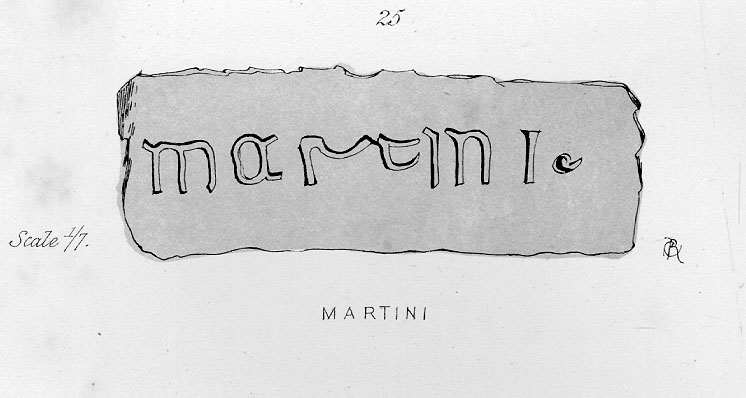 25
martini
Scale 1/7.
MARTINI